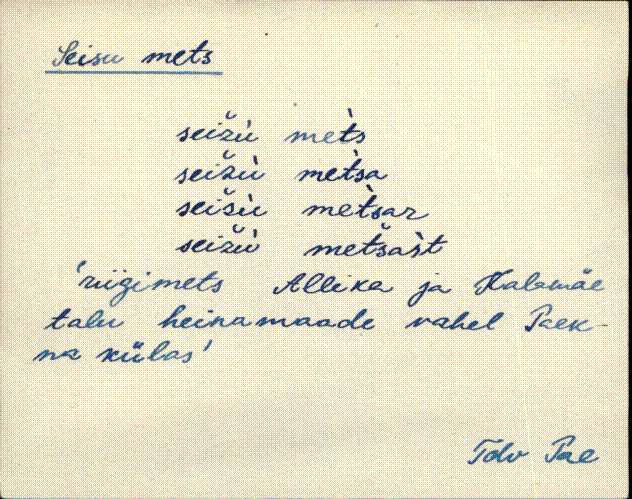 Seisu mets
seižù mèts
seižù mètsa
seišù mètsar
seižù metšas̀t
'riigimets Allika ja Kalamäe
talu heinamaade vahel Paek-
na külas'
Tdv Pae